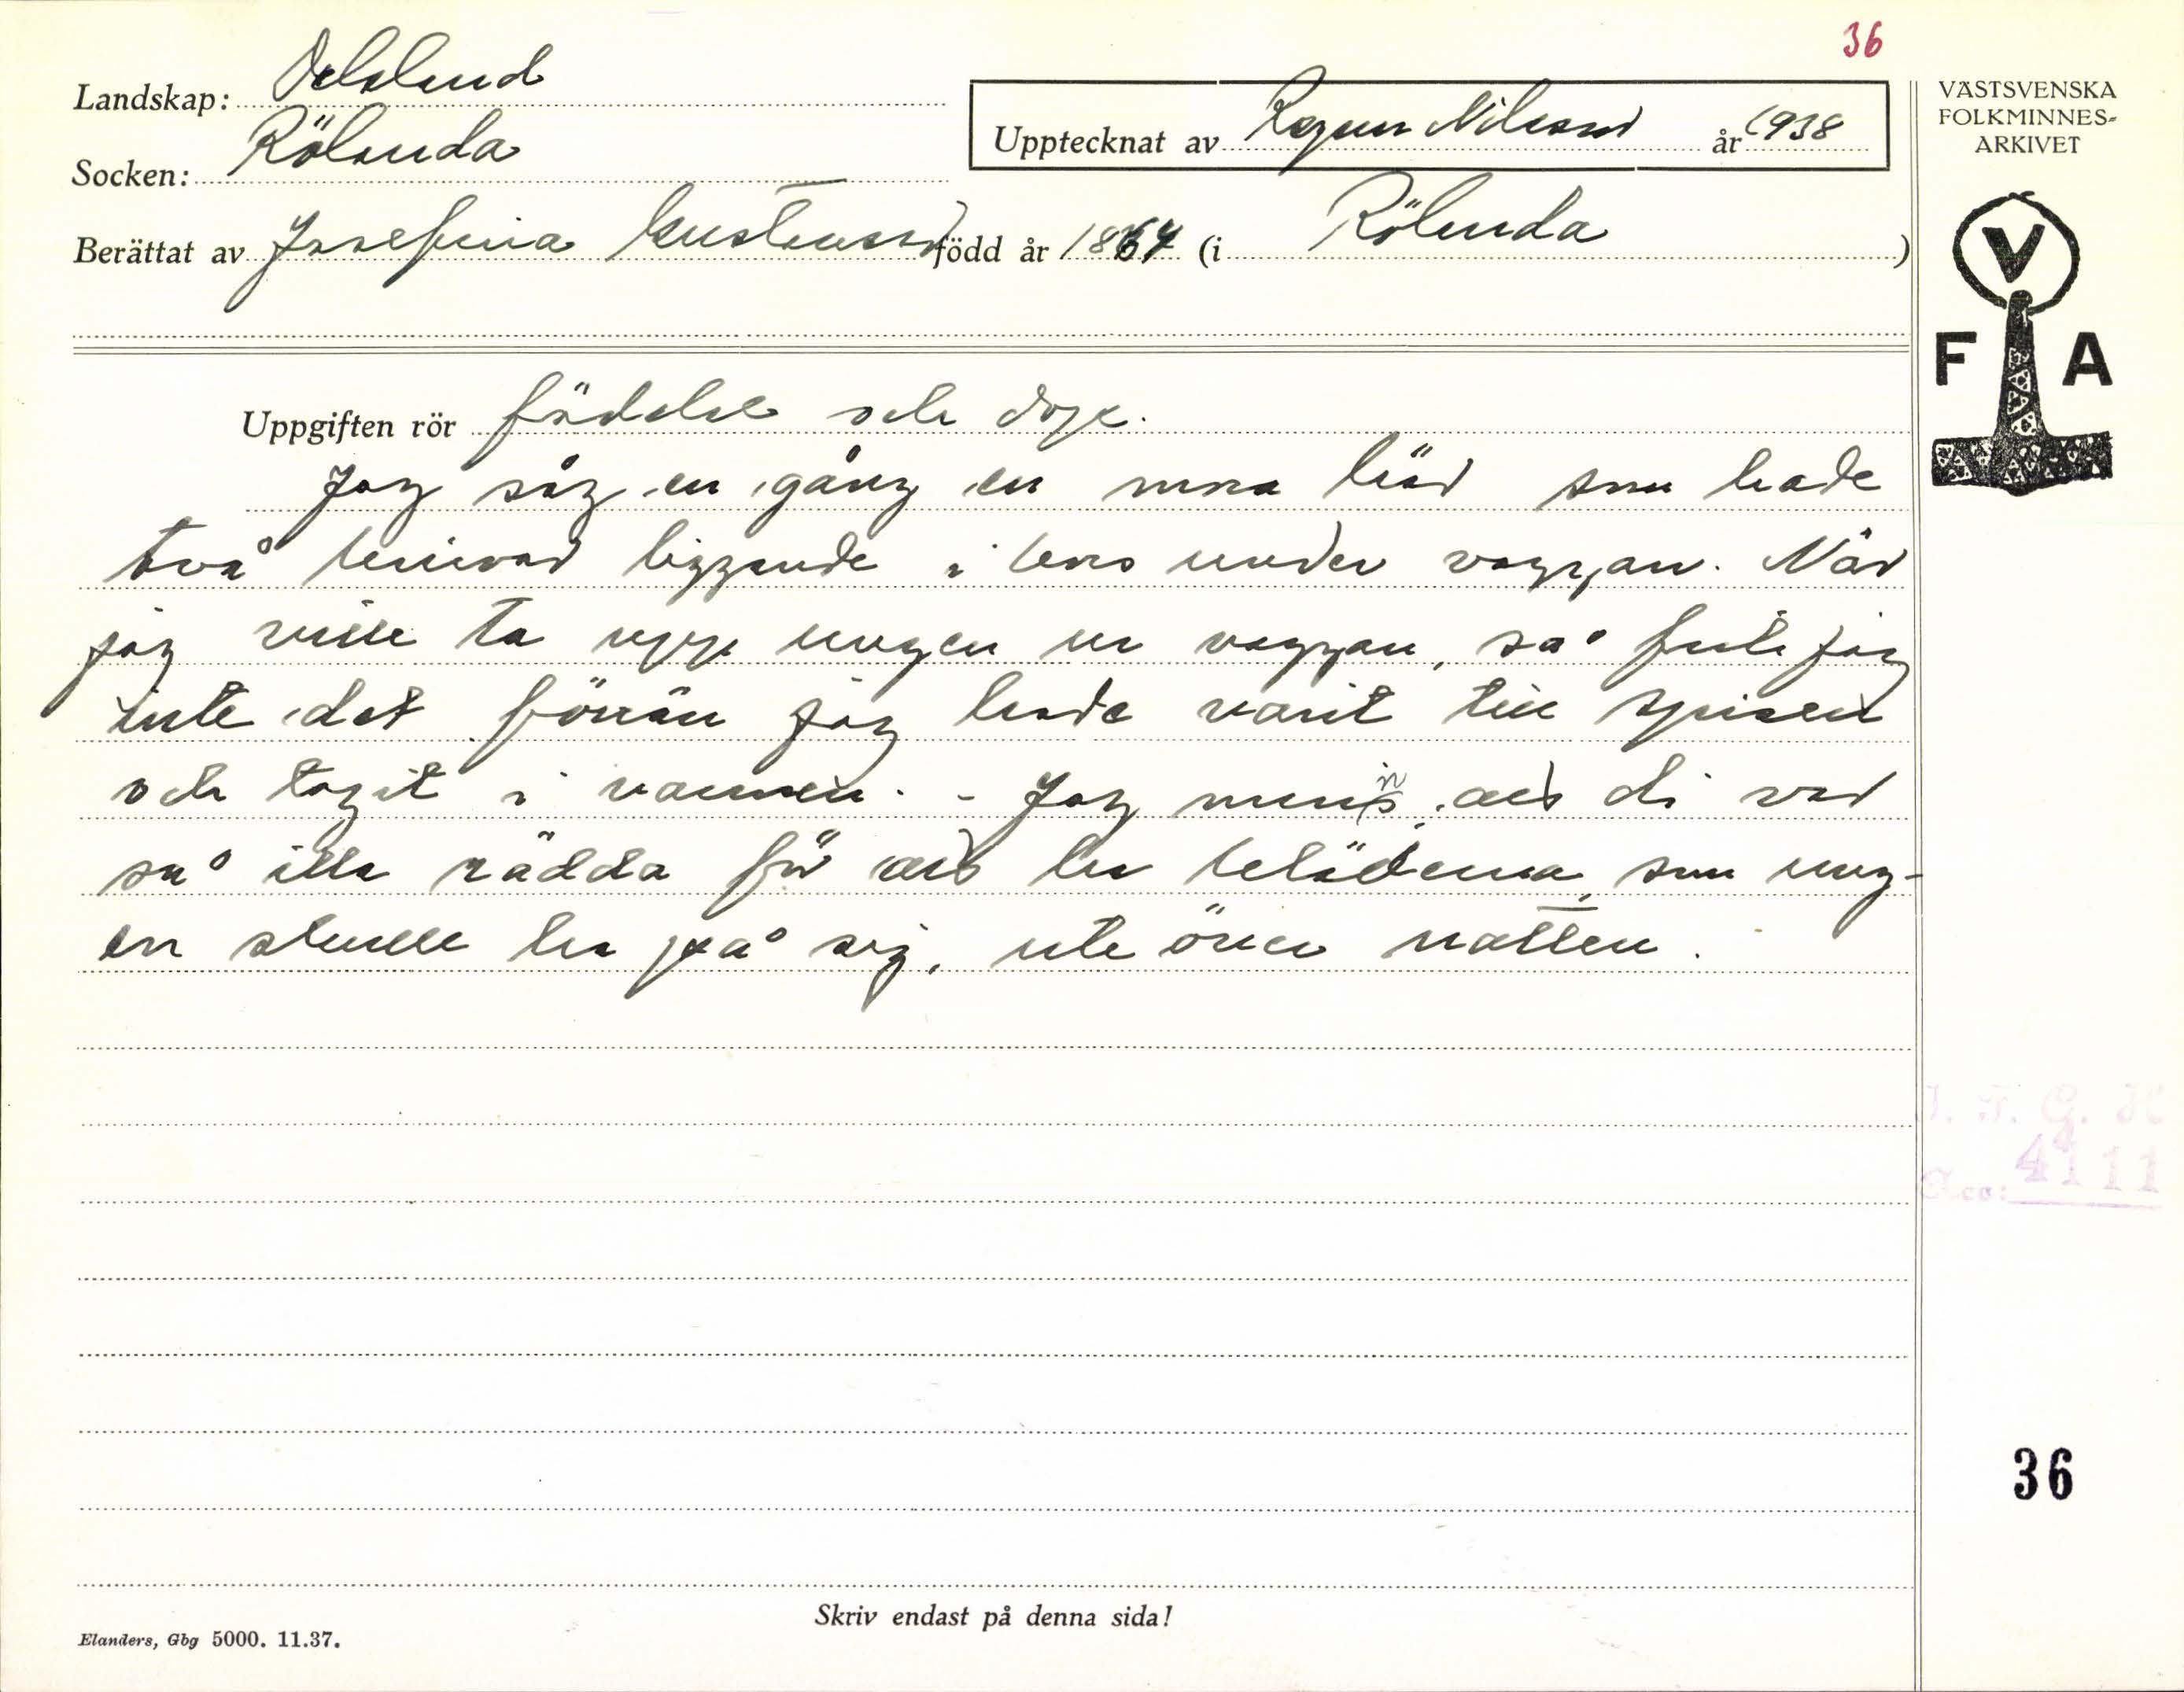 36
Landskap: Dalsland
Socken: Rölanda
Upptecknat av Ragnar Nilsson år 1938
Berättat av Josefina Gustavsson född år 1864 (i Rölanda)
VÄSTSVENSKA
FOLKMINNES-
ARKIVET
V
F A
Uppgiften rör födelse och dop.
Jag såg en gång en mora här som hade
två knivar liggande i kors under vaggan. När
jag ville ta upp ungen ur vaggan, så fick jag
inte det förrän jag hade varit till spisen
och tagit i Jag minns att di var
så illa rädda för att ha kläderna, som ung-
en skulle ha på sig, ute över natten.
I. F. G. H
Acc: 4111
36
Skriv endast på denna sida!
Elanders, Gbg 5000. 11.37.